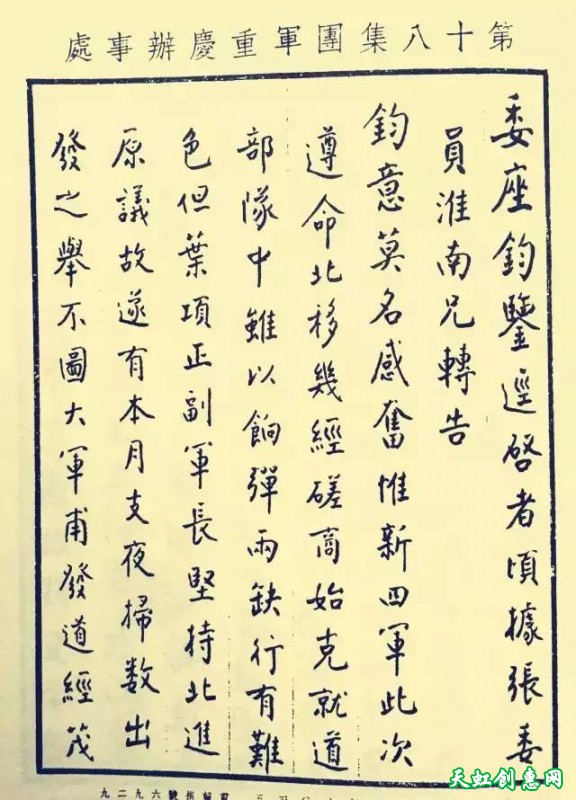 第十八集團軍重慶辦事處
委座鈞鑒逕啓者頃據張委
員淮南兄轉告
鈞意莫名感奮惟新四軍此次
遵命北移幾經磋商始克就道
部隊中雖以餉彈兩缺行有難
色但葉項正副軍長堅持北進
原議故遂有本月支夜掃数出
發之舉不圖大軍甫發道經茂
號六九二九
天虹创惠网